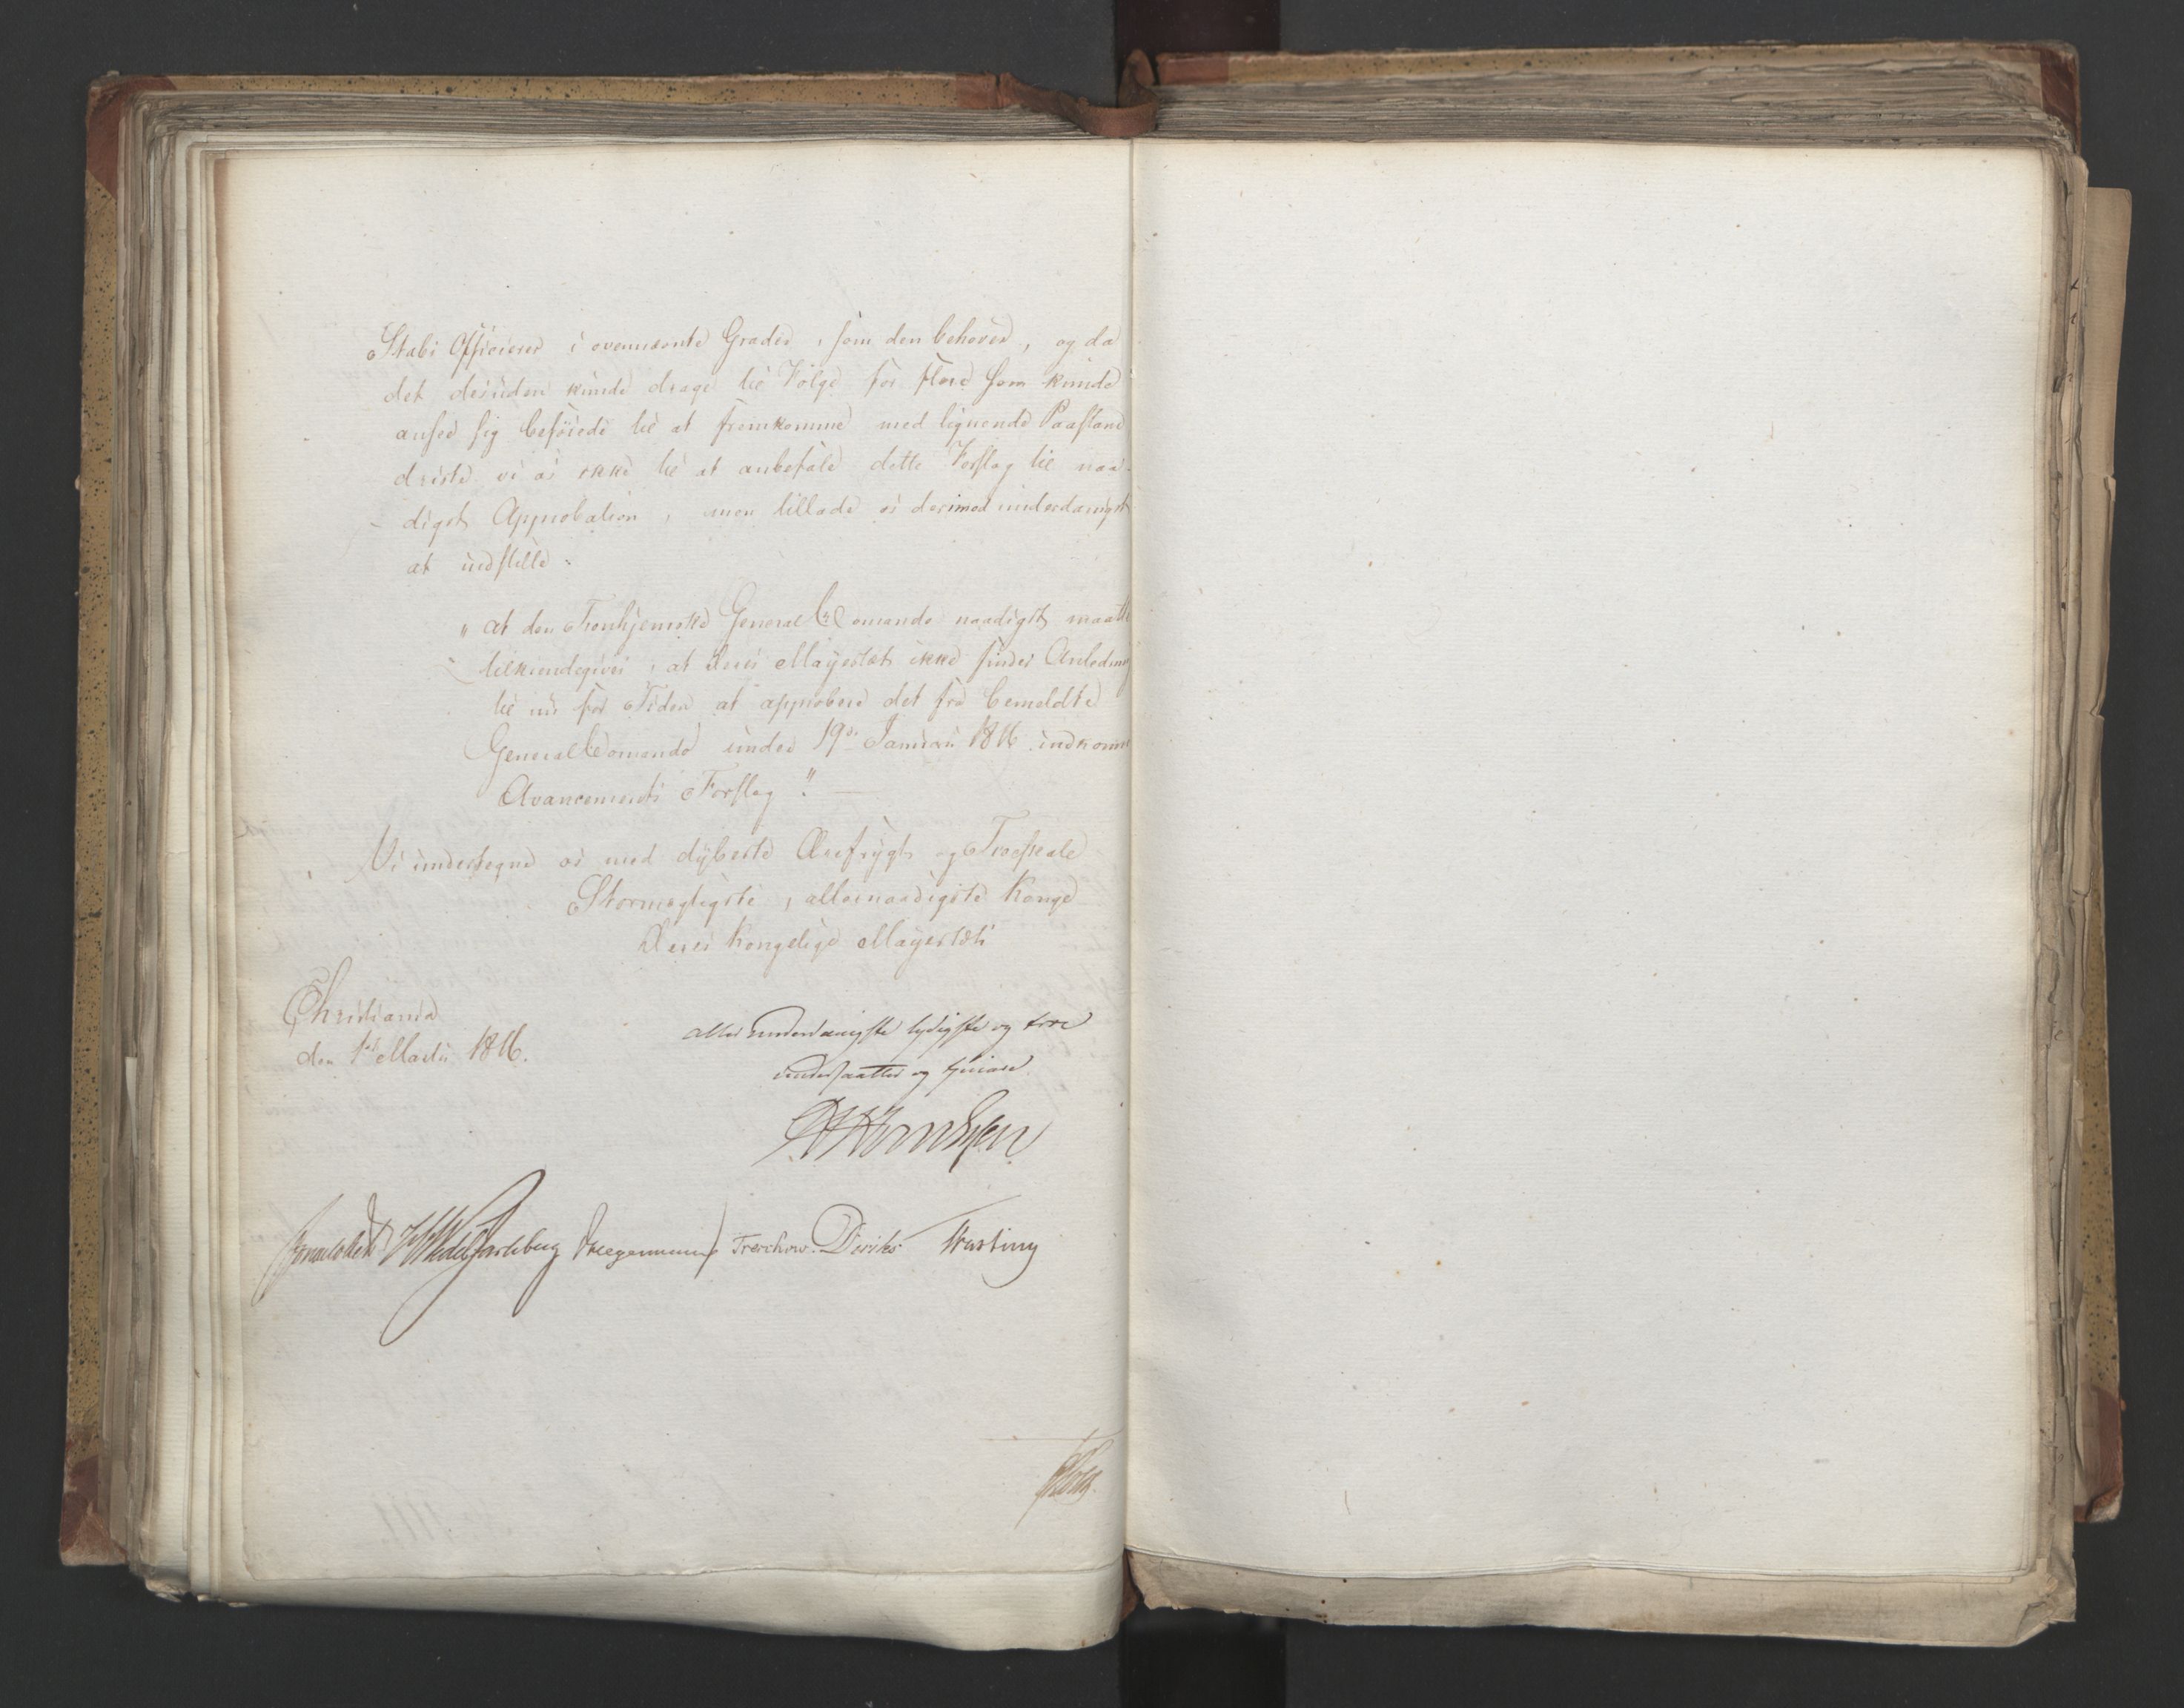 Stabs Officierer i ovennævnte Grader, som den behøver, og da
det desuden kunde drage til Følge for flere som kunde
ansee sig beføiede til at fremkomme med lignende Paastand
driste vi os ikke til at anbefale dette Forslag til naa-
digst Approbation, men tillade os derimod underdanigst
at indstille:
"at den Tronhjemske General Comando naadigst maatte
tilkiendegives, at Deres Mayestæt ikke finder Anledning
til nu for Tiden at approbere det fra bemeldte
General Comando under 19de Januarii 1816 indkomne
Avancements Forslag." —
Vi undertegne os med dybeste Ærefrygt og Troeskab
Stormægtigste, allernaadigste Konge
Deres Kongelige Mayestæts
Christiania
den 1ste Martii 1816.
allerunderdanigste lydigste og troe
undersaatter og tjenere
Sommerhielm HWedel Jarlsberg Krogemann Treschow. Diriks Hasting
Holst.